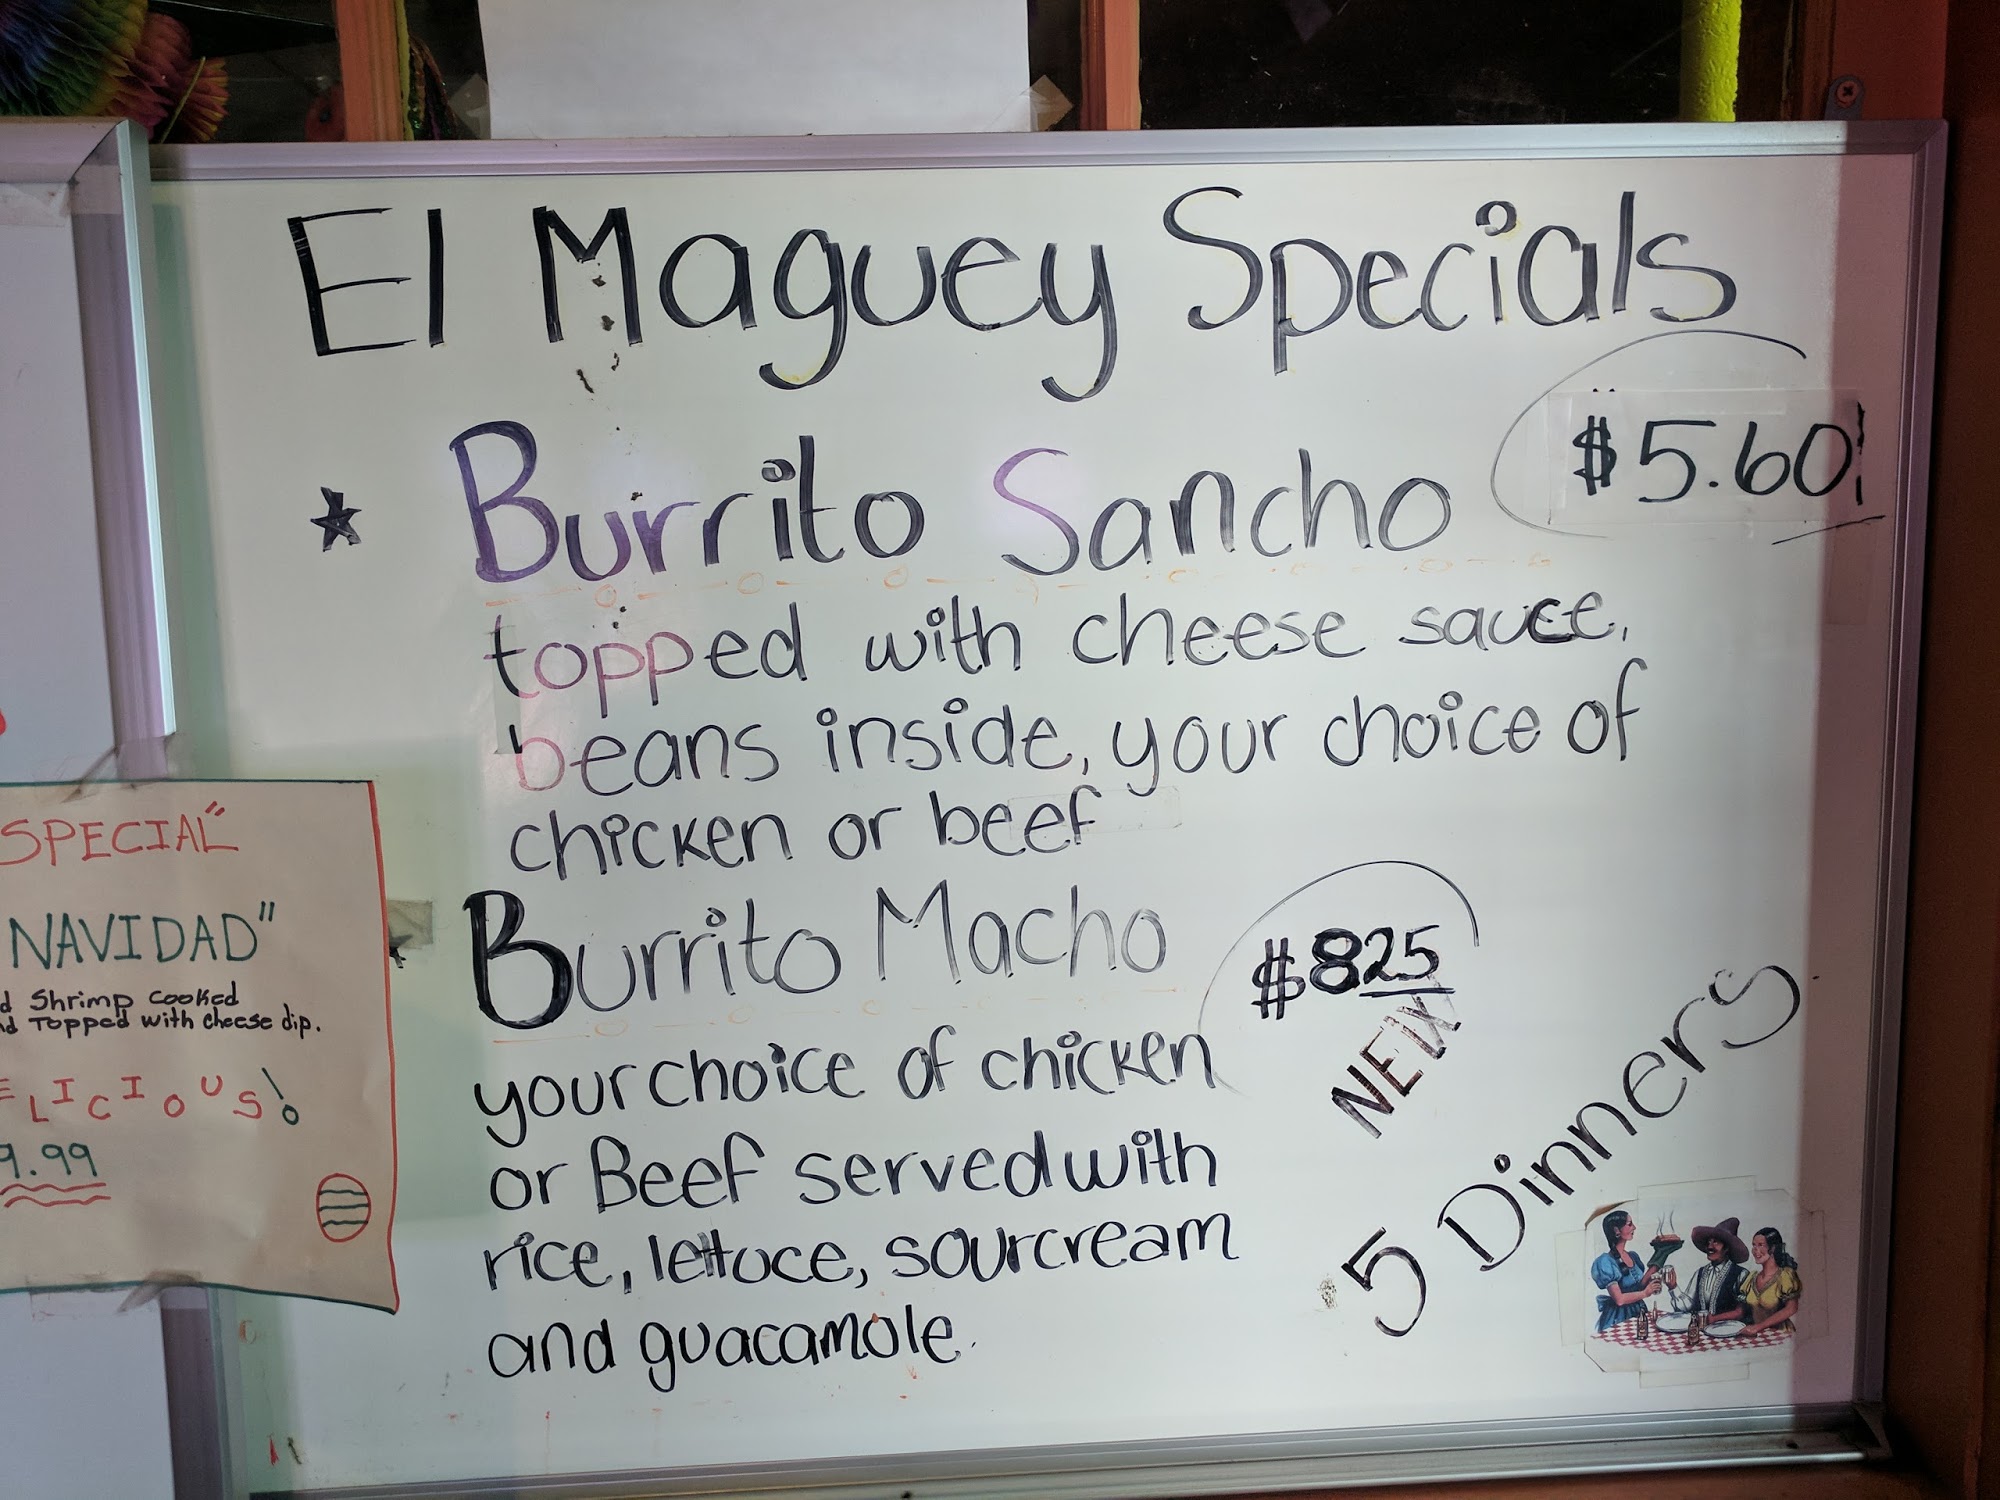 El Maguey Specials
* Burrito Sancho $5.60!
topped with cheese sauce,
beans inside, your choice of
chicken or beef
* Burrito Macho $825
NEW
your choice of chicken
or Beef served with
rice, lettuce, sourcream
and guacamole.
5 Dinners
SPECIAL"
NAVIDAD"
Shrimp cooked
Topped with cheese dip.
ELICIOUS!
9.99